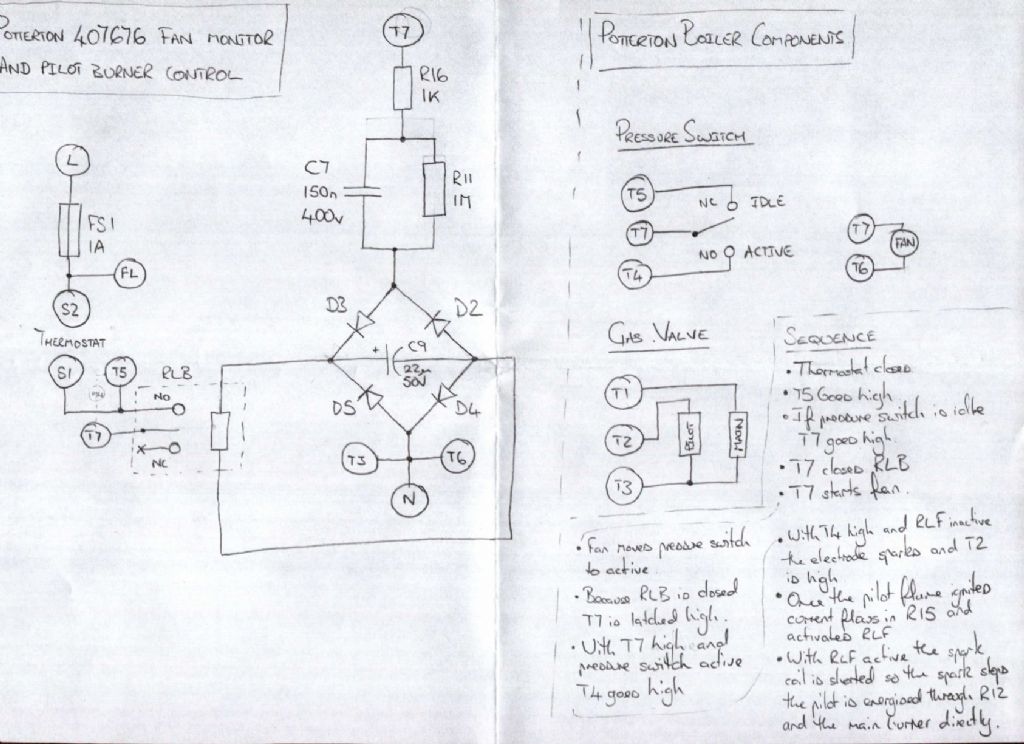 POTTERTON 407676 FAN MONITOR
AND PILOT BURNER CONTROL
L
FS1
1A
FL
S2
THERMOSTAT
S1
T5
RLB
NO
T7
X
NC
T7
R16
1K
C7
150n
400v
R11
1M
D3
D2
+
C9
22m
50V
D5
D4
T3
T6
N
POTTERTON BOILER COMPONENTS
PRESSURE SWITCH
T5
NC
IDLE
T7
NO
ACTIVE
T4
T7
FAN
T6
GAS VALVE
T1
T2
T3
PILOT
MAIN
SEQUENCE
• Thermostat closes
• T5 Goes high
• If pressure switch is idle
T7 goes high
• T7 closes RLB
• T7 starts fan.
• Fan moves pressure switch
to active
• Because RLB is closed
T7 is latched high.
• With T7 high and
pressure switch active
T4 goes high
• With T4 high and RLF inactive
the electrode sparks and T2
is high
• Once the pilot flame ignites
current flows in R15 and
activates RLF
• With RLF active the spark
coil is shorted so the spark stops
the pilot is energised through R12
and the main burner directly.